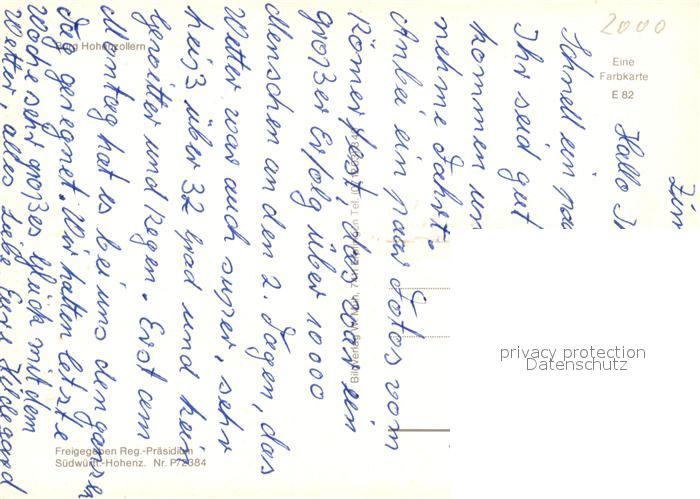 2000
Eine
Farbkarte
E 82
Burg Hohenzollern
Hallo
Schnell ein
Ihr seid gut
kommen
nehme Fahrt.
Anbei ein paar Fotos vom
Römerfest, das war ein
großer Erfolg über 10000
Menschen an den 2. Tagen, das
Wetter war auch super, sehr
heiß über 32 Grad und kein
Gewitter und Regen. Erst am
Montag hat es bei uns den ganzen
Tag geregnet. Wir hatten letzte
Woche sehr großes Glück mit dem
Wetter, alles Liebe Eure Hildegard
Freigegeben Reg.-Präsidium
Südwürtt.-Hohenz. Nr. P72384
privacy protection
Datenschutz